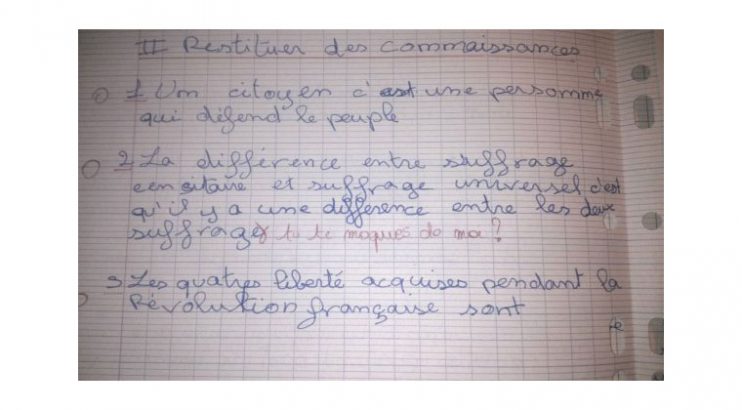 II Restituer des connaissances
0 1 Un citoyen c'est une personne
qui défend le peuple
0 2 La différence entre suffrage
censitaire et suffrage universel c'est
qu'il y a une différence entre les deux
suffrages tu te moques de moi ?
3 Les quatres liberté acquises pendant la
Révolution française sont